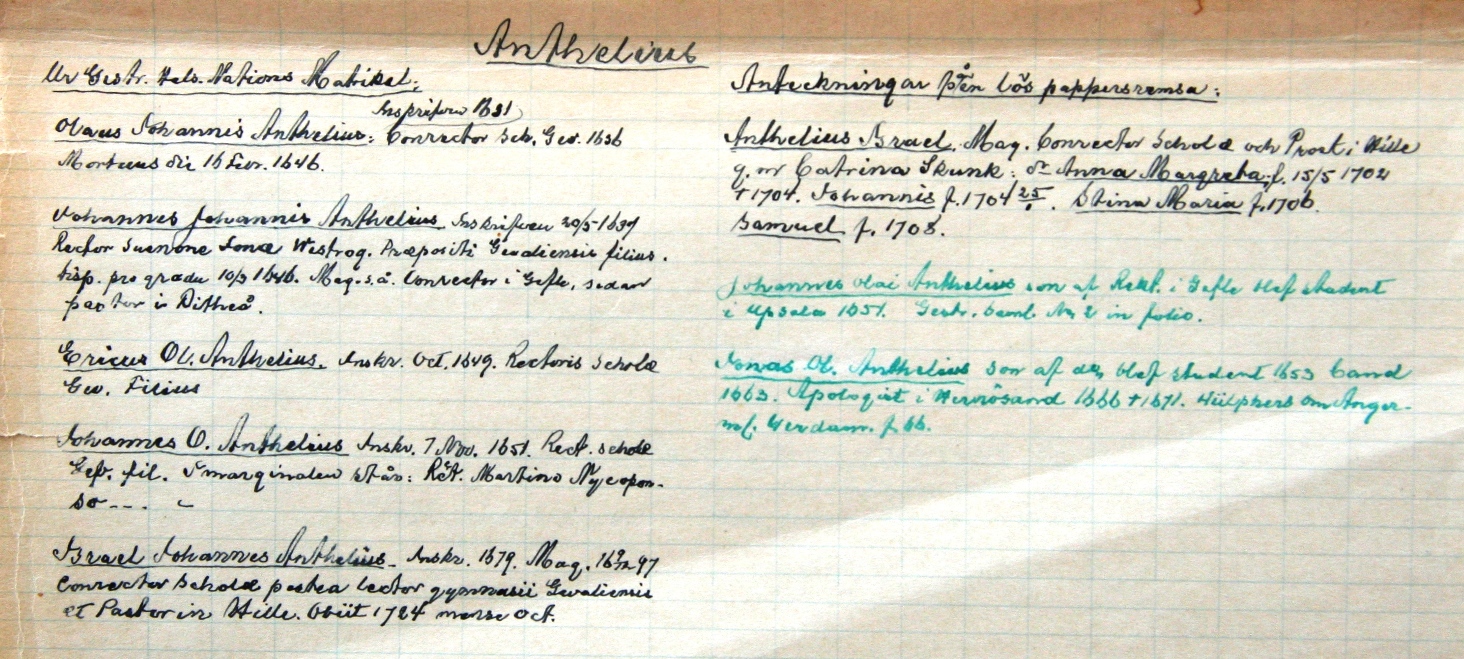 Anthelius
Ur Gestr. Hels. Nations Matrikel:
Inskrifven 1631
Olaus Johannis Anthelius: Conrector Sch. Gev. 1636
Mortuus die 16 Febr. 1646.
Johannes Johannis Anthelius. Inskrifven 20/5-1639
Rector Suenone Jonæ Westrog. Præpositi Gevaliensis filius.
Disp. pro gradu 1646. Mag. s.å. Conrector i Gefle, sedan
pastor i Pitheå.
Ericus Ol. Anthelius. Inskr. Oct. 1649. Rectoris Scholæ
Gev. Filius
Johannes O. Anthelius Inskr. 7 Nov. 1651. Rect. Scholæ
Gef. fil. I marginalen står: Rect. Martino Nycopen-
so --- 
Israel Johannes Anthelius. Inskr. 1679. Mag. 97
Conrector Scholæ postea lector gymnasii Gevaliensis
et Pastor in Hille. Obiit 1724 mense Oct.
Anteckningar på en lös pappersremsa:
Anthelius Israel. Mag. Conrector Scholæ och Prost i Hille
g. m Catrina Skunk: Anna Margreta, f. 15/5 1702
† 1704. Johannis f. 1704 25. Stina Maria f. 1706.
Samuel f. 1708.
Johannes Olai Anthelius son af Rekt. i Gefle blef student
i Upsala 1651. Gestr. Saml. No 2 in folio.
Jonas Ol. Anthelius son af d:o blef student 1653 Cand
1663. Apologist i Hernösand 1666 † 1671. Hülphers om Ånger-
ml. p. 66.